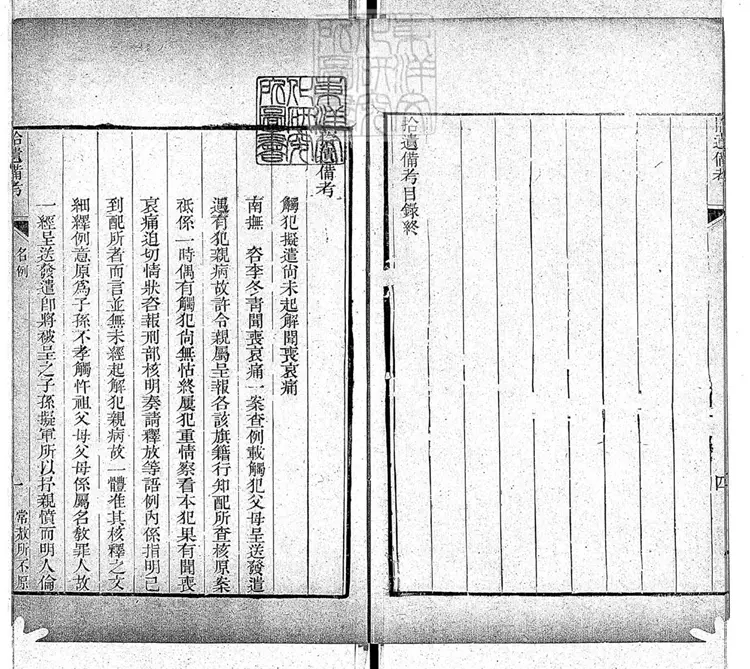 拾遺備考
四
拾遺備考目錄終
東洋文
化研究
所圖書
拾遺備考
觸犯擬遣尚未起解聞喪哀痛
南撫 咨李冬青聞喪哀痛一案查例載觸犯父母呈送發遣
遇有犯親病故許令親屬呈報各該旗籍行知配所查核原案
秪係一時偶有觸犯尚無怙終屢犯重情察看本犯果有聞喪
哀痛迫切情狀咨報刑部核明奏請釋放等語例內係指明已
到配所者而言並無未經起解犯親病故一體准其核釋之文
細繹例意原為子孫不孝觸忤祖父母父母係屬名教罪人故
一經呈送發遣即將被呈之子孫擬軍所以抒親憤而明人倫
拾遺備考
名例
一
常赦所不原